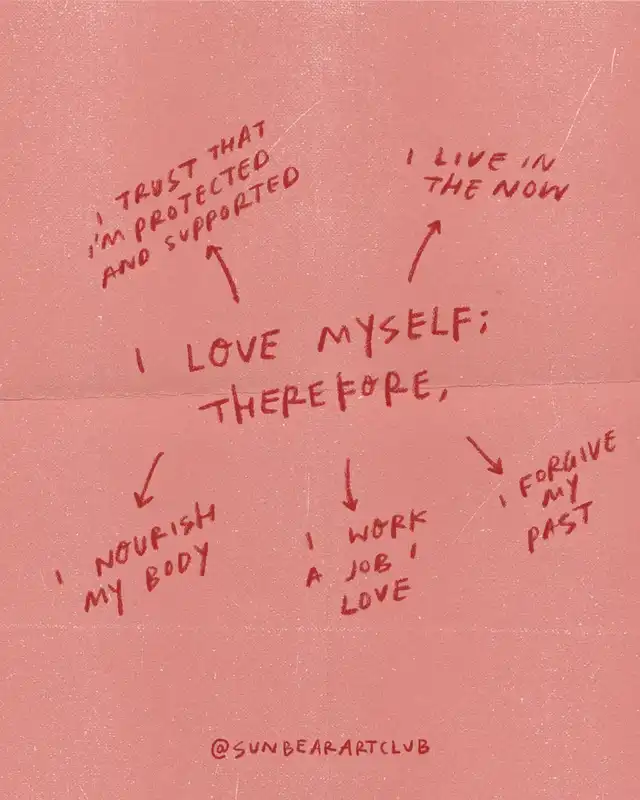 I TRUST THAT
I'M PROTECTED
AND SUPPORTED
I LIVE IN
THE NOW
I LOVE MYSELF;
THEREFORE,
I NOURISH
MY BODY
I WORK
A JOB I
LOVE
I FORGIVE
MY
PAST
@SUNBEARARTCLUB